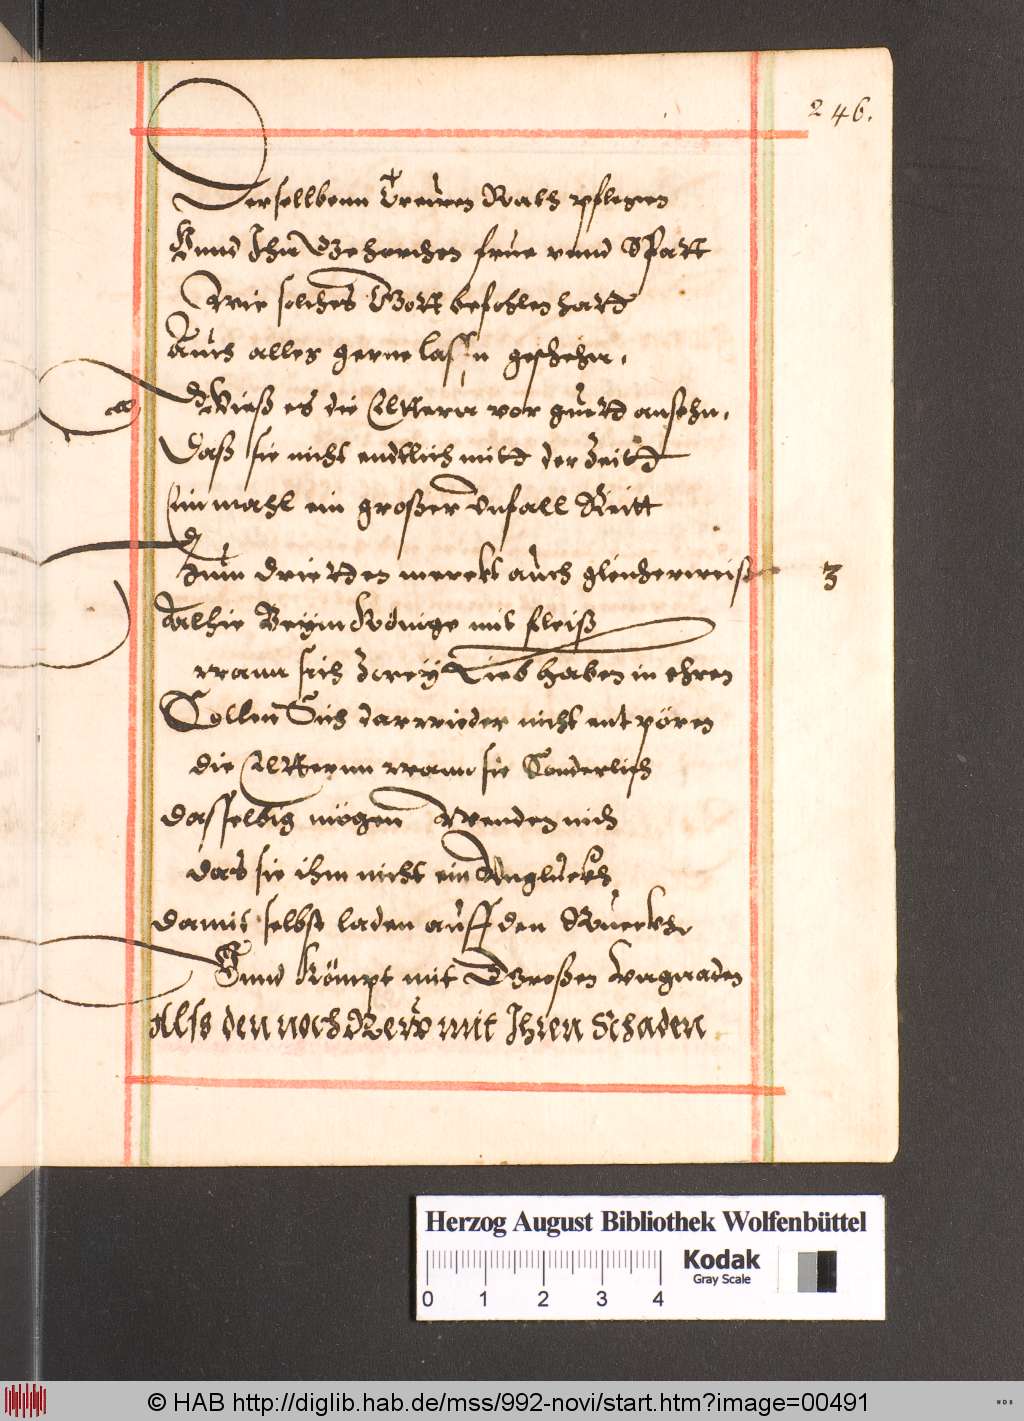 246.
Dersellbenn Treuen Rath pflegen
Vnnd Ihn Gehorchen frue vnnd Spatt
Wie solches Gott befohlen hattd
Auch alles gerne lassn geschehn,
Wieß es die Elternn vor guttd ansehn,
Daß sie nicht endtlich mitt der Zeitt
Ein mahl ein großer Vnfall Reitt
Zum drietden merckt auch gleicherweiß
3
Alhie Beym Könige mit fleiß
wann sich Zwey Lieb haben in ehren
Sollen Sich darwieder nicht entpören
die Elternn wann sie Sonderlich
dasselbig mögen Wenden nich
das sie ihm nicht ein Vnglückh
damit selbst laden auff den Rückh
Vnnd Kömpt mit Großen Vngnaden
Alss den noch Rew mit Ihren Schaden
Herzog August Bibliothek Wolfenbüttel
Kodak
Gray Scale
0 1 2 3 4
© HAB http://diglib.hab.de/mss/992-novi/start.htm?image=00491